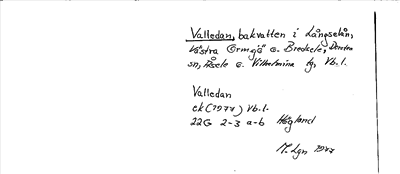 Valledan, bakvatten i Långselån,
Västra Ormsjö o. Bredsele, Dorotea
sn, Åsele o. Vilhelmina tg, Vb.l.
Valledan
ek (1977) Vb.l.
22G 2-3 a-b Högland
M. Lgn 1977